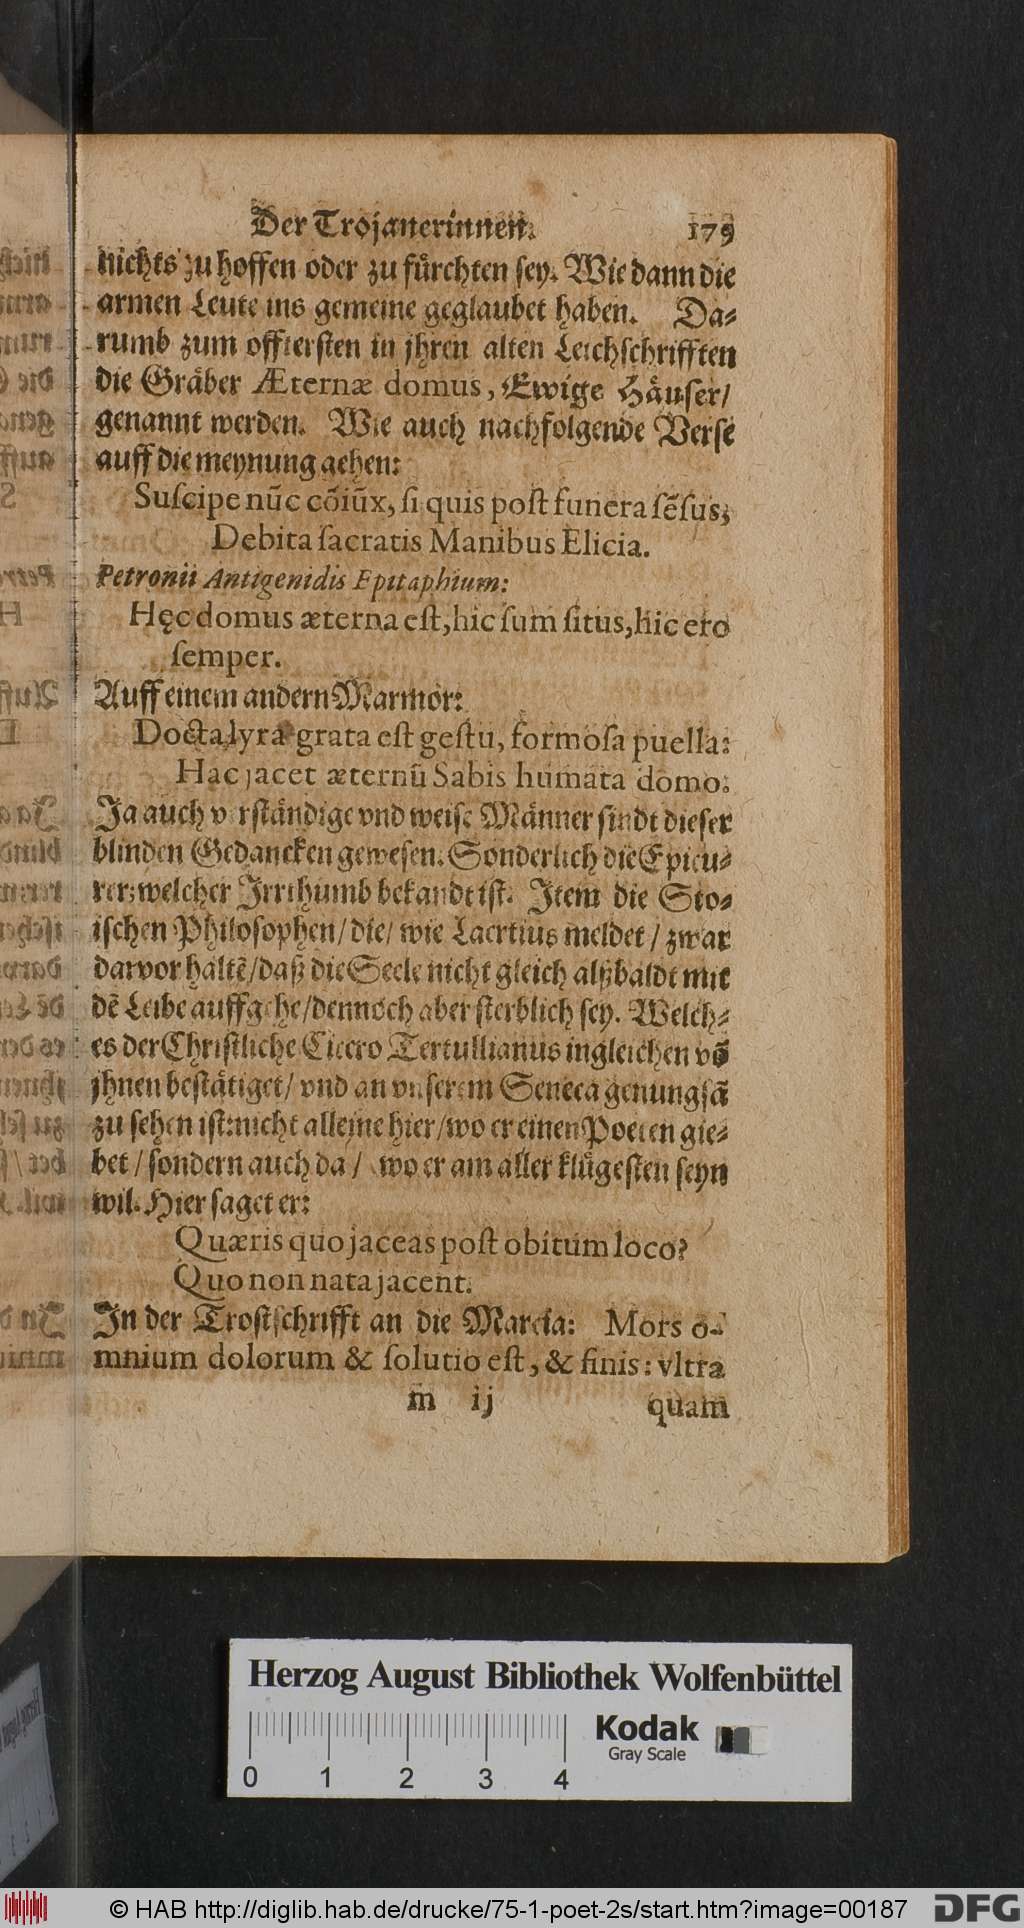 Der Trojanerinnen. 179
nichts zu hoffen oder zu fürchten sey. Wie dann die
armen Leute ins gemeine geglaubet haben. Da-
rumb zum offtersten in jhren alten Leichschrifften
die Gräber Æternæ domus, Ewige Häuser/
genannt werden. Wie auch nachfolgende Verse
auff die meynung gehen:
Suſcipe nũc cõiũx, ſi quis poſt funera ſẽſus,
Debita ſacratis Manibus Elicia.
Petronii Antigenidis Epitaphium:
Hęc domus æterna eſt, hic ſum ſitus, hic ero
ſemper.
Auff einem andern Marmor:
Docta lyra grata eſt geſtu, formoſa puella:
Hac jacet æternũ Sabis humata domo.
Ja auch verständige vnd weise Männer sindt dieser
blinden Gedancken gewesen. Sonderlich die Epicu-
rer; welcher Irrthumb bekandt ist. Item die Sto-
ischen Philosophen/ die/ wie Laertius meldet/ zwar
darvor haltẽ/ daß die Seele nicht gleich alßbaldt mit
dẽ Leibe auffgehe/ dennoch aber sterblich sey. Welch-
es der Christliche Cicero Tertullianus ingleichen võ
jhnen bestätiget/ vnd an vnserem Seneca genungsã
zu sehen ist: nicht alleine hier/ wo er einen Poeten gie-
bet/ sondern auch da/ wo er am aller klügesten seyn
wil. Hier saget er:
Quæris quo jaceas poſt obitum loco?
Quo non nata jacent.
In der Trostschrifft an die Marcia: Mors o-
mnium dolorum & ſolutio eſt, & finis: vltra
m ij quam
Herzog August Bibliothek Wolfenbüttel
Kodak
Gray Scale
0 1 2 3 4
© HAB http://diglib.hab.de/drucke/75-1-poet-2s/start.htm?image=00187 DFG